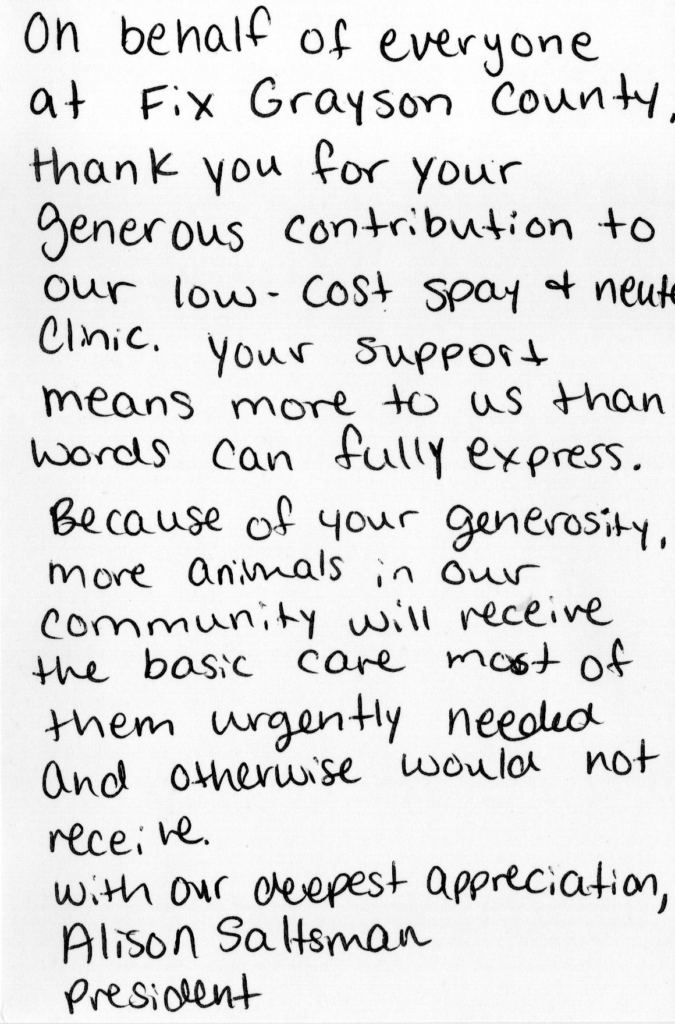 On behalf of everyone
at Fix Grayson County,
thank you for your
generous contribution to
our low-cost spay & neute
Clinic. Your support
means more to us than
words can fully express.
Because of your generosity,
more animals in our
community will receive
the basic care most of
them urgently needed
and otherwise would not
receive.
with our deepest appreciation,
Alison Saltsman
President